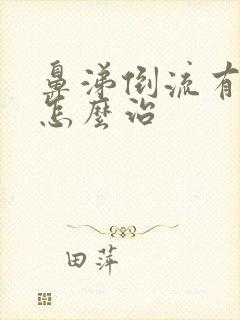 鼻涕倒流有
怎麼治
田萍